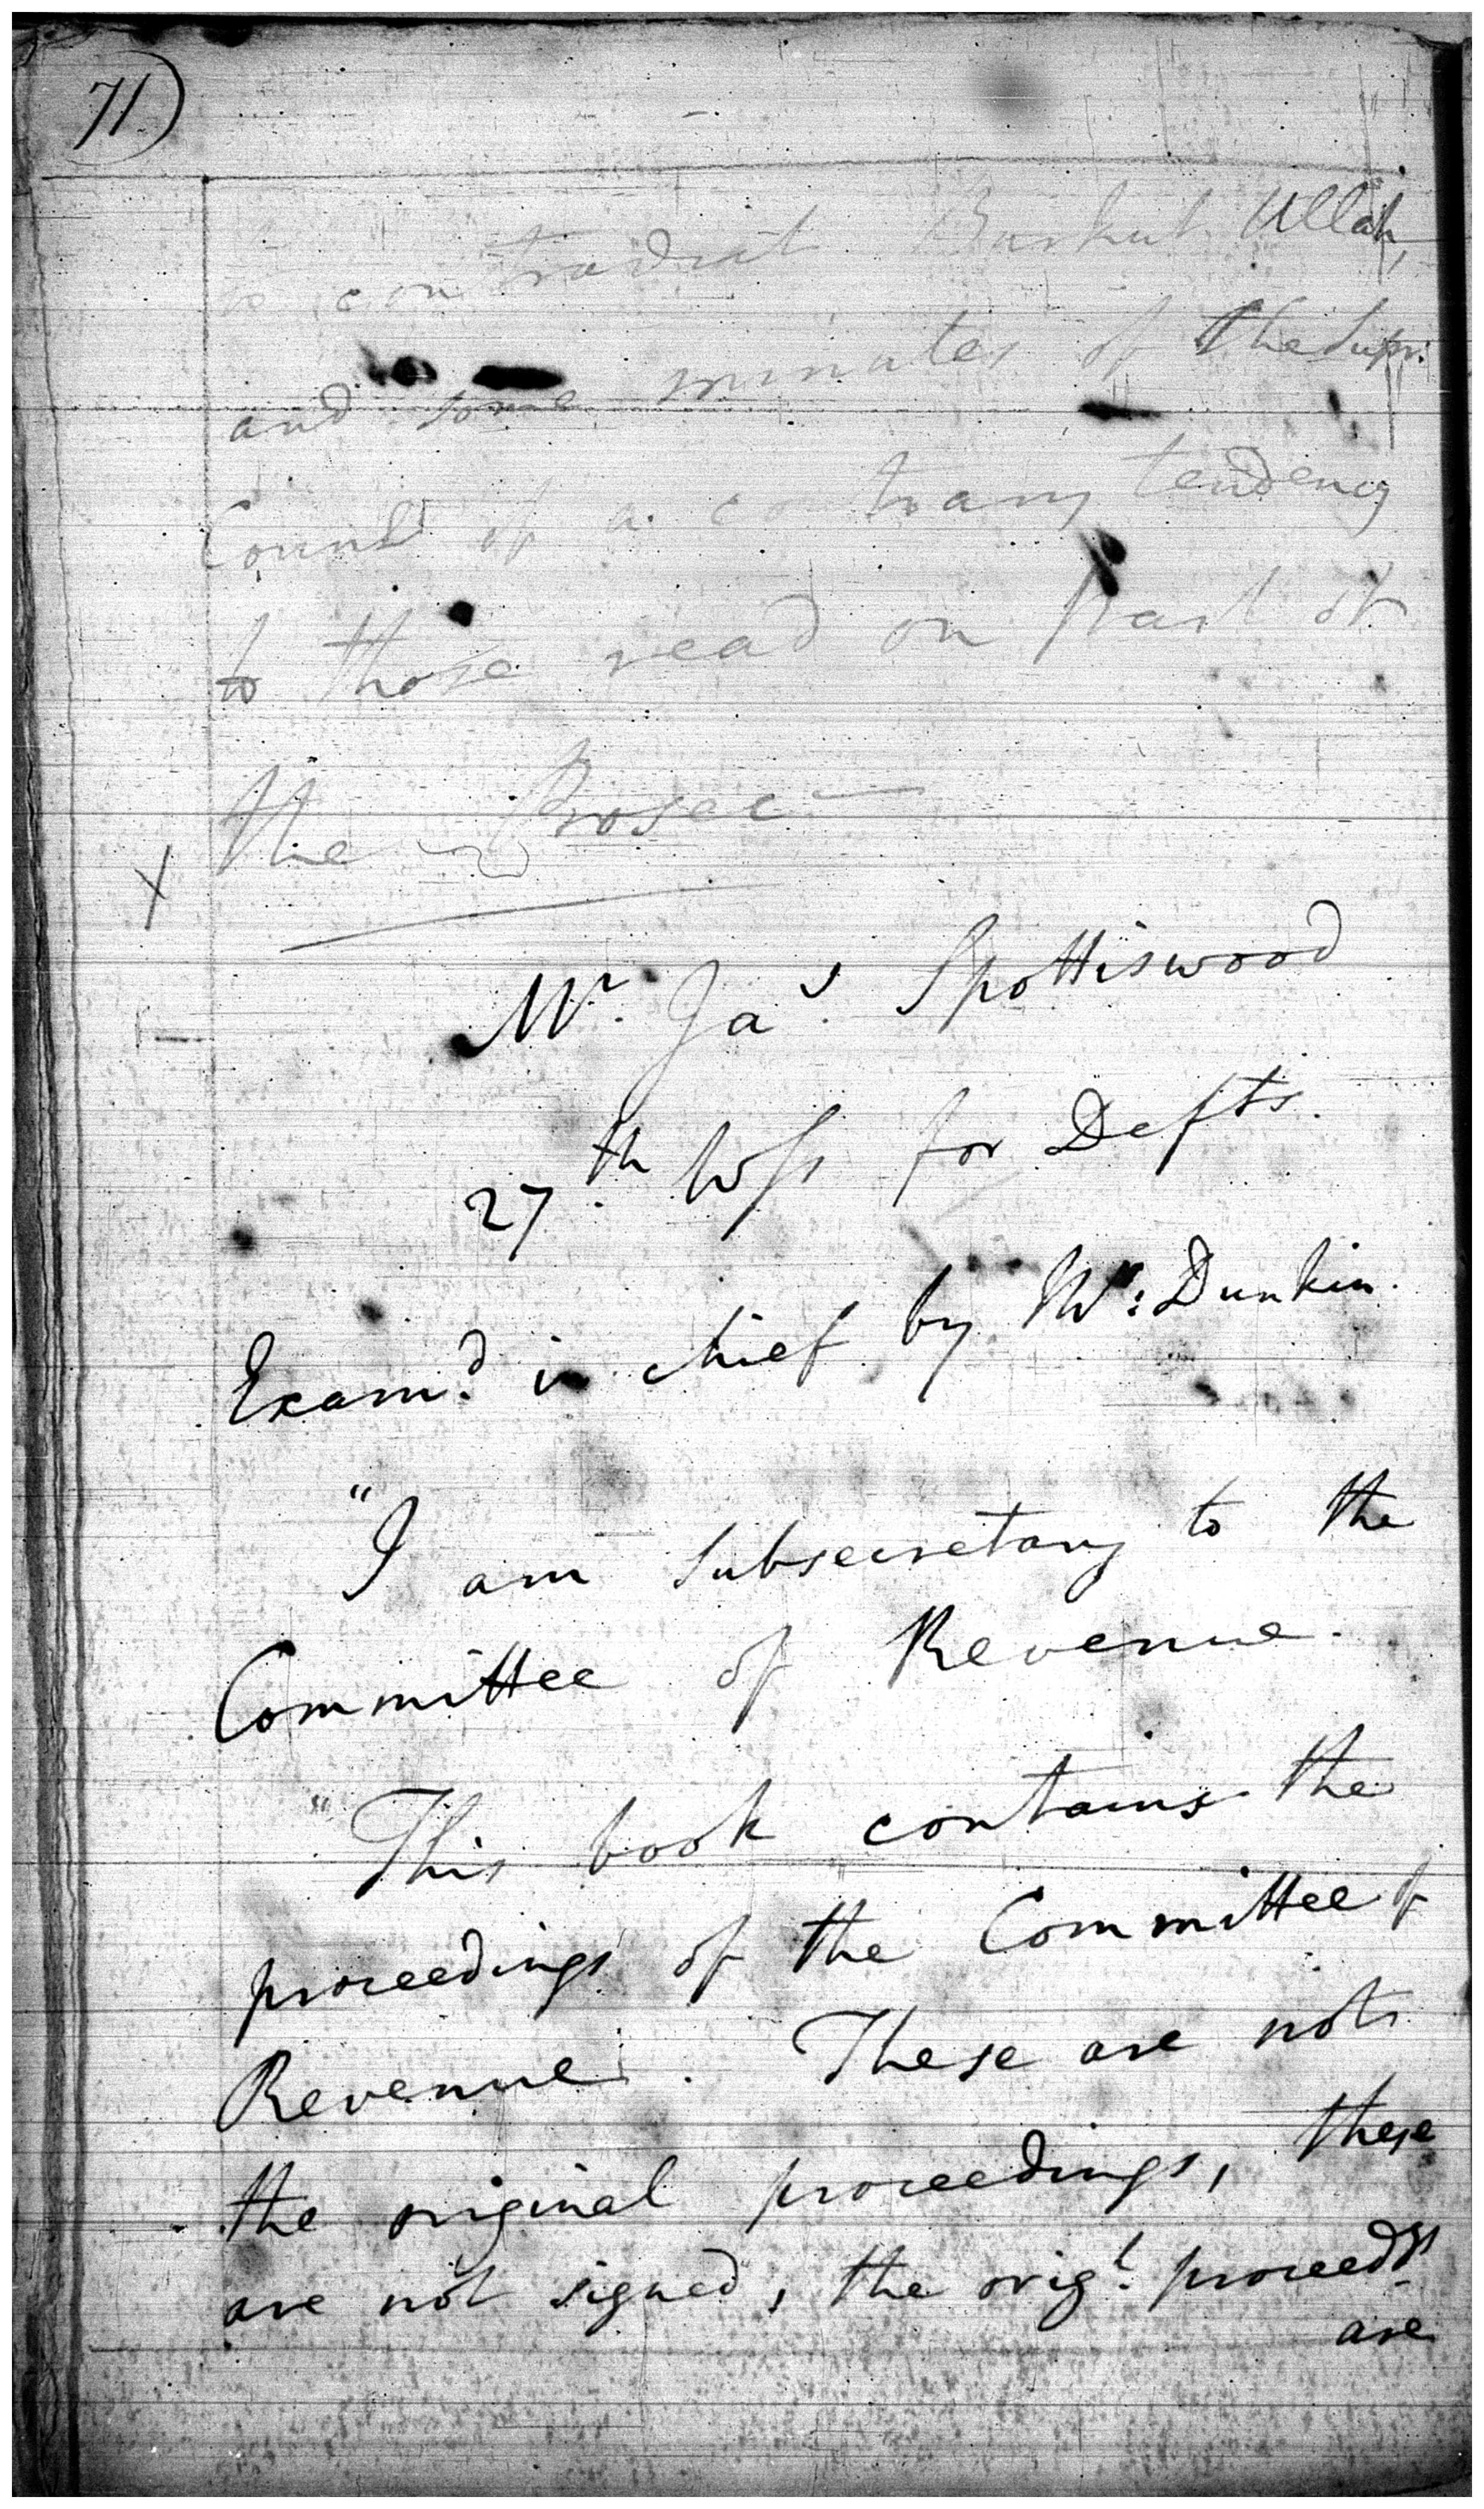 71)
to contradict Burkut Ullah,
and some minutes of the Supr.
Council of a contrary tendency
to those read on part of
the Prosec
X
Mr. Jas. Spottiswood
27th. Wss for Defts.
Examd. in chief by Mr: Dunkin.
"I am Subsecretary to the
Committee of Revenue.
"This book contains the
proceedings of the Committee of
Revenue. These are not
the original proceedings, these
are not signed, the origl. proceedgs
are